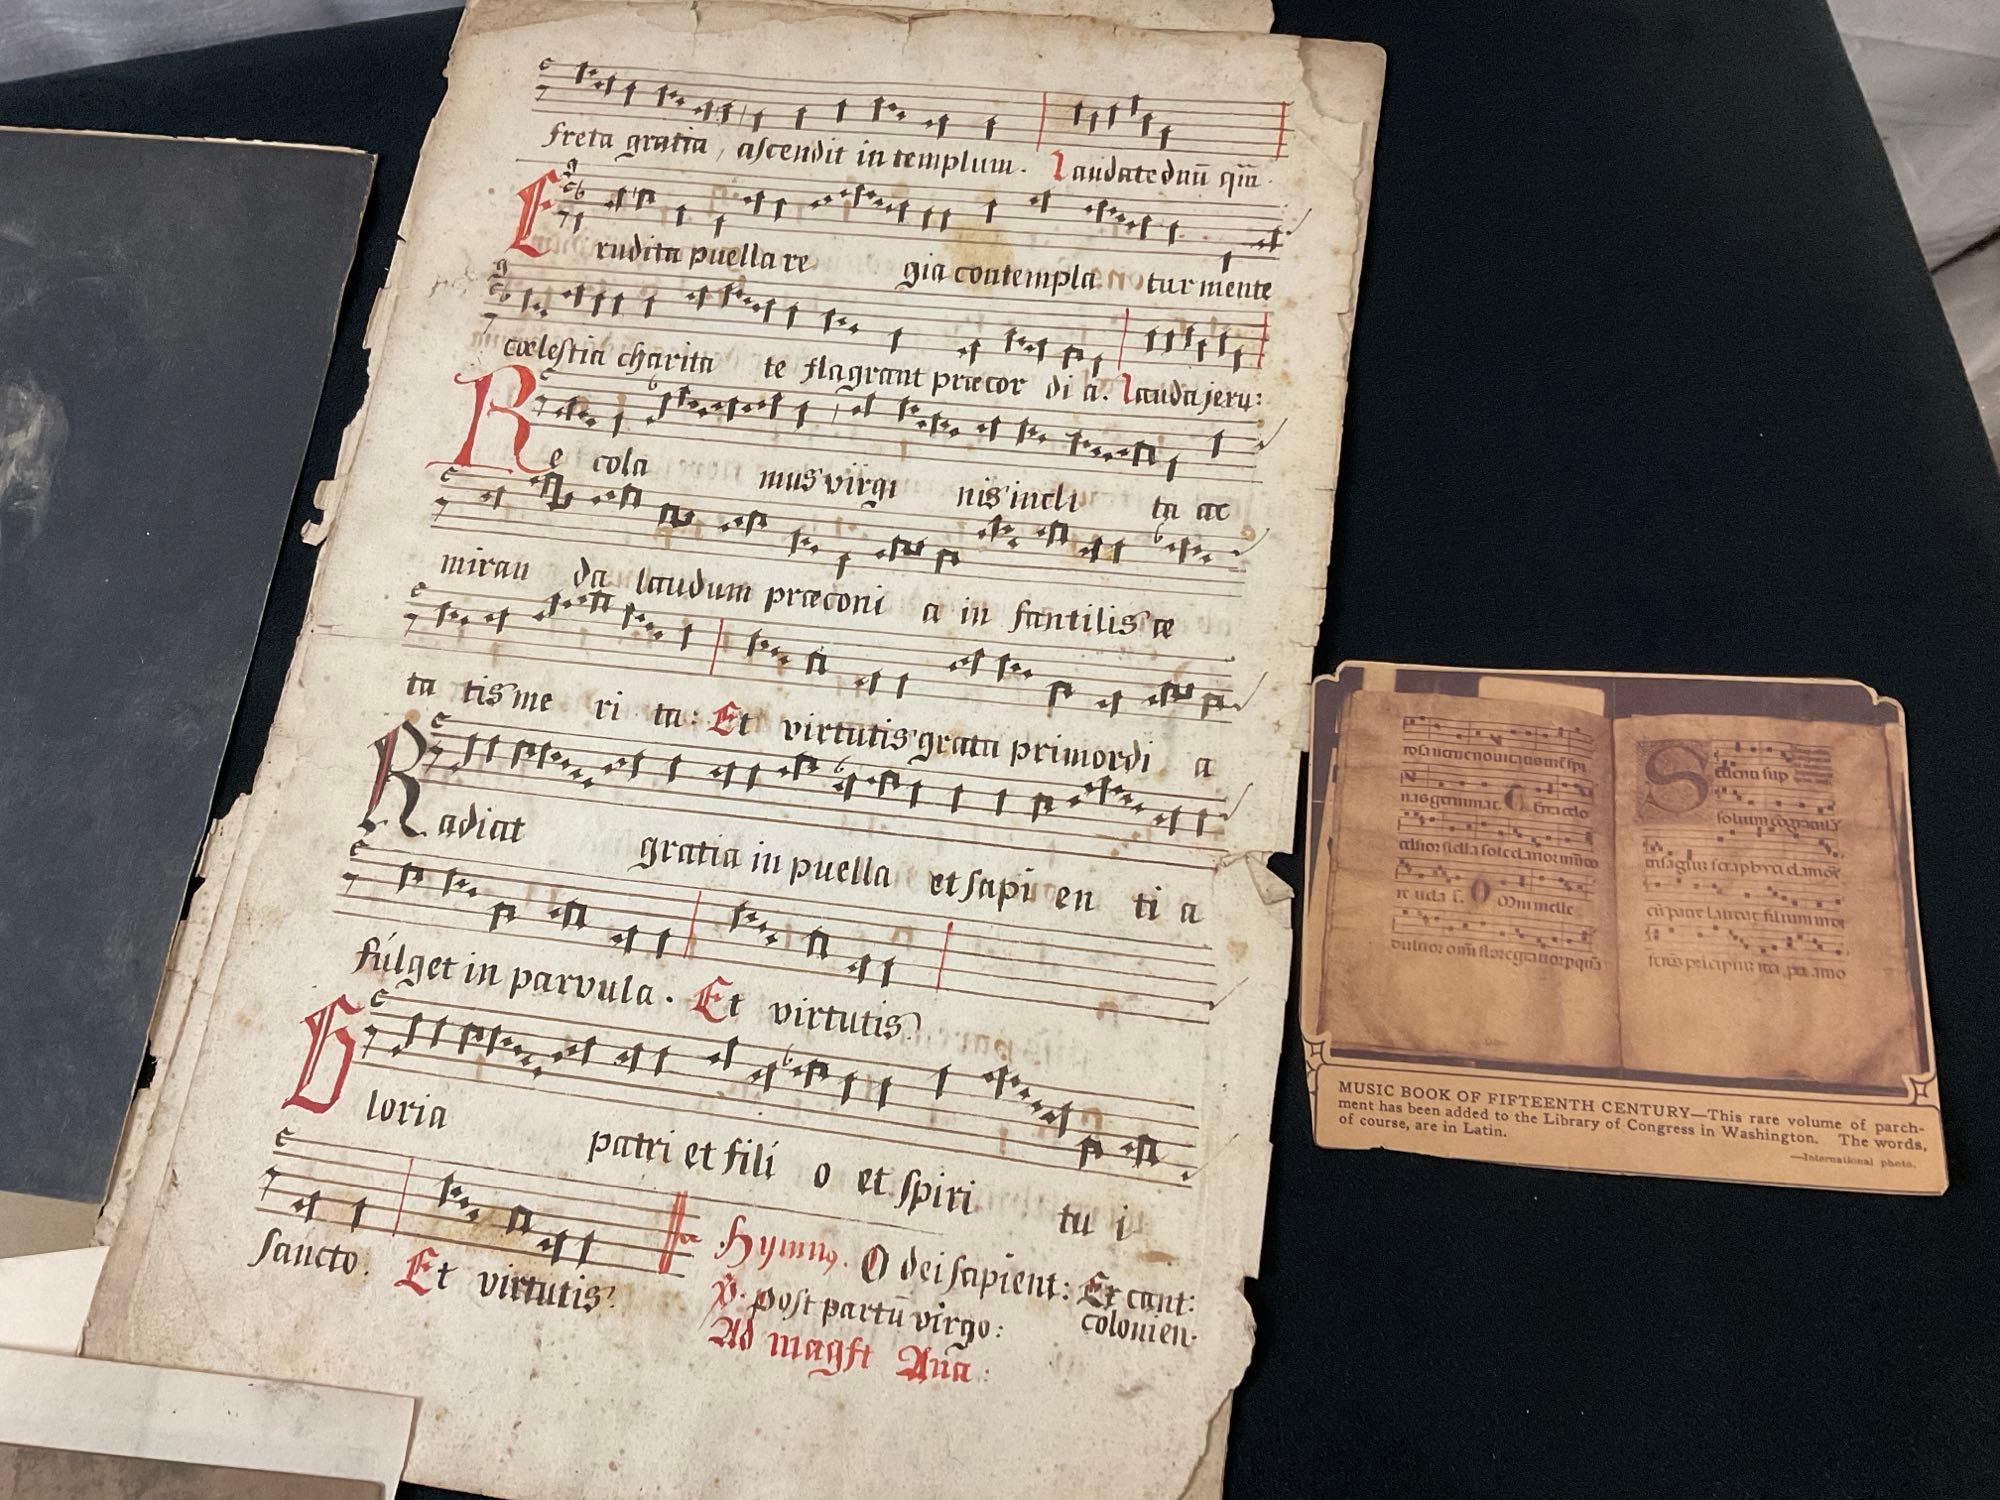 freta gratia, ascendit in templum. Laudate dnū qm̄.
Erudita puella regia contemplatur mente
cœlestia charitate flagrant præcordia. Lauda jeru:
Recolamus virginis inclita ac
miranda laudum præconia infantilis æ
tatis merita: Et virtutis grata primordia
Radiat gratia in puella et sapientia
fúlget in parvula. Et virtutis
Gloria patri et filio et spiritui
sancto. Et virtutis
Hymn9. O dei sapient: Ex cant:
colonien.
℣. post partū virgo:
Ad magft Ana:
MUSIC BOOK OF FIFTEENTH CENTURY—This rare volume of parch-
ment has been added to the Library of Congress in Washington. The words,
of course, are in Latin.
—International photo.